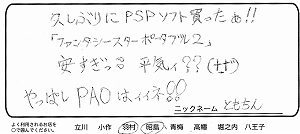 久しぶりにPSPソフト買ったぁ!!
「ファンタシースターポータブル2」
安すぎっ 平気ィ??(せ゛)
やっぱしPAOはイイネ!!
ニックネーム ともちん
よく利用されるお店を
○で囲んでください。 立川 小作 羽村 昭島 青梅 高幡 堀之内 八王子